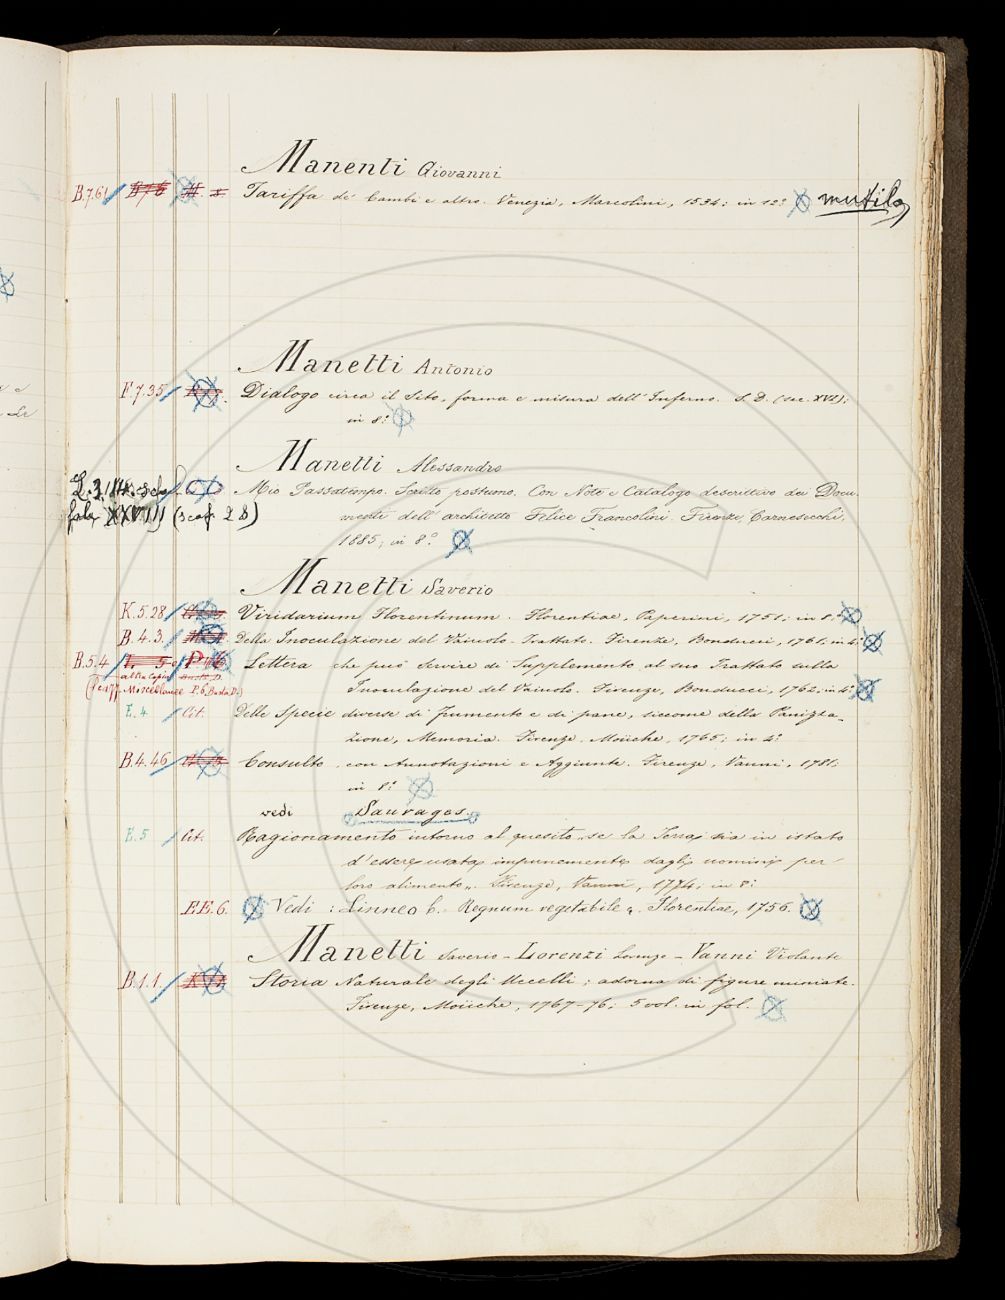 Manenti Giovanni
B.7.61 Tariffa de' Cambi e altro. Venezia, Marcolini, 1534; in 12º mutilo
Manetti Antonio
F.7.35 Dialogo circa il Sito, forma e misura dell'Inferno. S. D. (sec. XVI);
in 8º
Manetti Alessandro
Mio Passatempo. Scritto postumo. Con Note e Catalogo descrittivo dei Docu-
menti dell'architetto Felice Francolini. Firenze, Carnesecchi,
XXVIII (scaf. 28)
1885; in 8º
Manetti Saverio
K.5.28 Viridarium Florentinum. Florentiae, Paperini, 1751; in 8º
B.4.3. Della Inoculazione del Vaiuolo. Trattato. Firenze, Bonducci, 1761; in 4º
B.5.4 Lettera che può servire di Supplemento al suo Trattato sulla
altra copia Busta D.
Inoculazione del Vaiuolo. Firenze, Bonducci, 1762; in 4º
Miscellanee P.6, Busta D.)
E.4 Cit. Delle Specie diverse di frumento e di pane, siccome della Panizza-
zione, Memoria. Firenze. Moücke, 1765; in 4º
B.4.46 Consulto, con Annotazioni e Aggiunte. Firenze, Vanni, 1781;
in 8º
vedi Sauvages.
E.5 Cit. Ragionamento intorno al quesito "se la Terra sia in istato
d'essere usata impunemente dagli uomini per
loro alimento". Firenze, Vanni, 1774; in 8º
EE.6. Vedi: Linneo C. "Regnum vegetabile". Florentiae, 1756.
Manetti Saverio - Lorenzi Lorenzo - Vanni Violante
B.1.1 Storia Naturale degli Uccelli; adorna di figure miniate.
Firenze, Moücke, 1767-76; 5 vol. in fol.